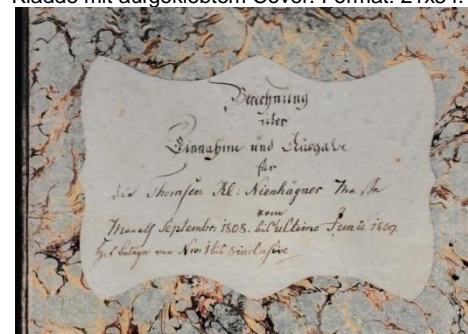 Kladde mit aufgeklebtem Cover. Format: 21x34.
Berechnung
über
Einnahme und Ausgabe
für
die Thomsen Kl: Nienhägner
vom
Monath Septembr. 1808. bis ultimo Junii 1809.
von No: 1 bis 8 inclusive